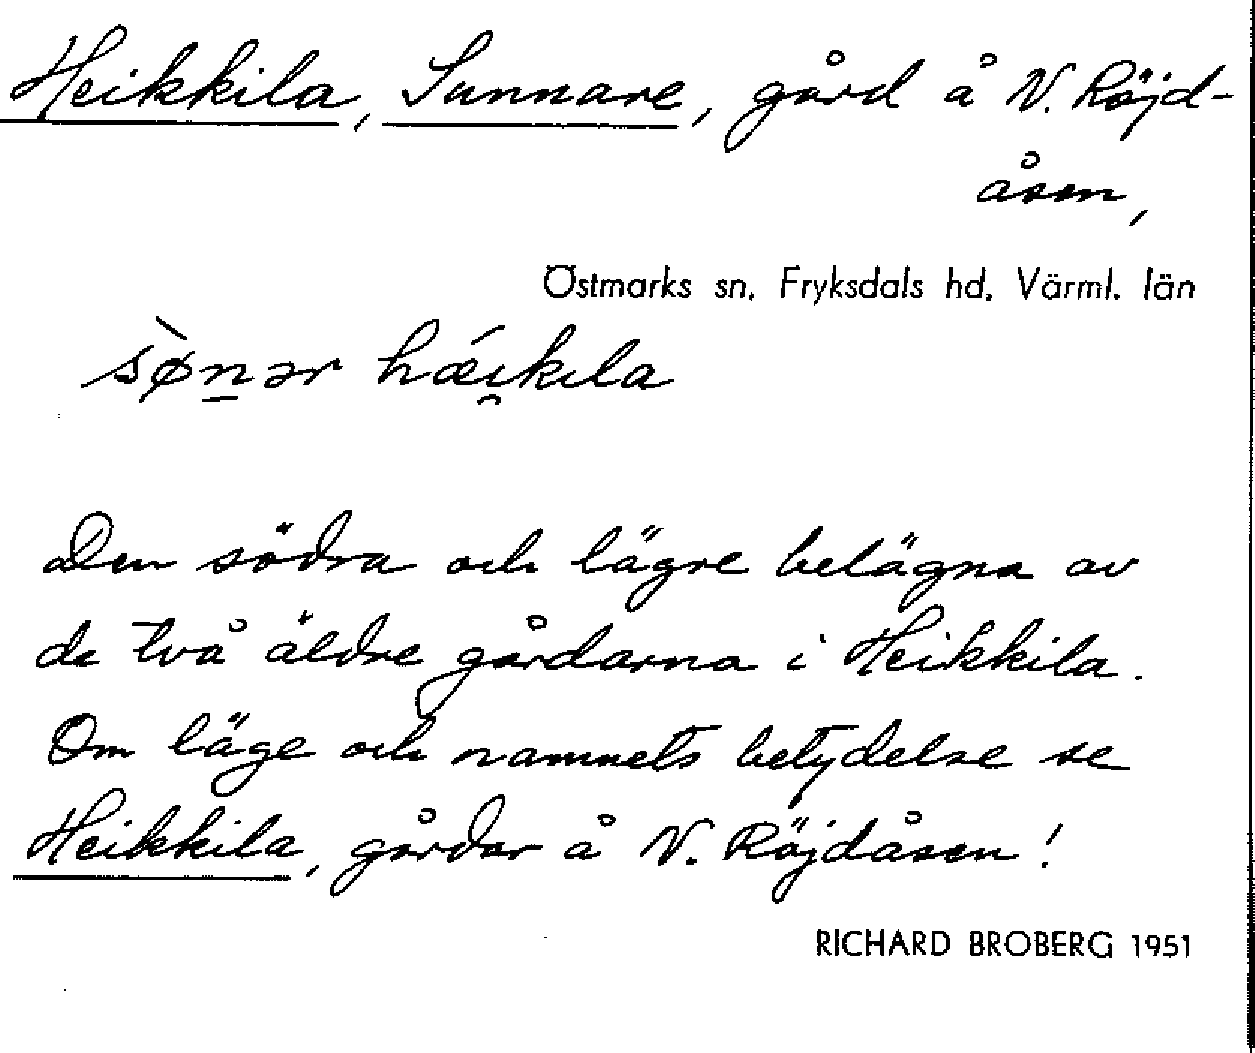 Heikkila, Sunnare, gård å N. Röjd-
åsen,
Östmarks sn. Fryksdals hd. Värml. län
sø̀n̲ər hǽi̯kıla
Den södra och lägre belägna av
de två äldre gårdarna i Heikkila.
Om läge och namnets betydelse se
Heikkila, gårdar å N. Röjdåsen!
RICHARD BROBERG 1951